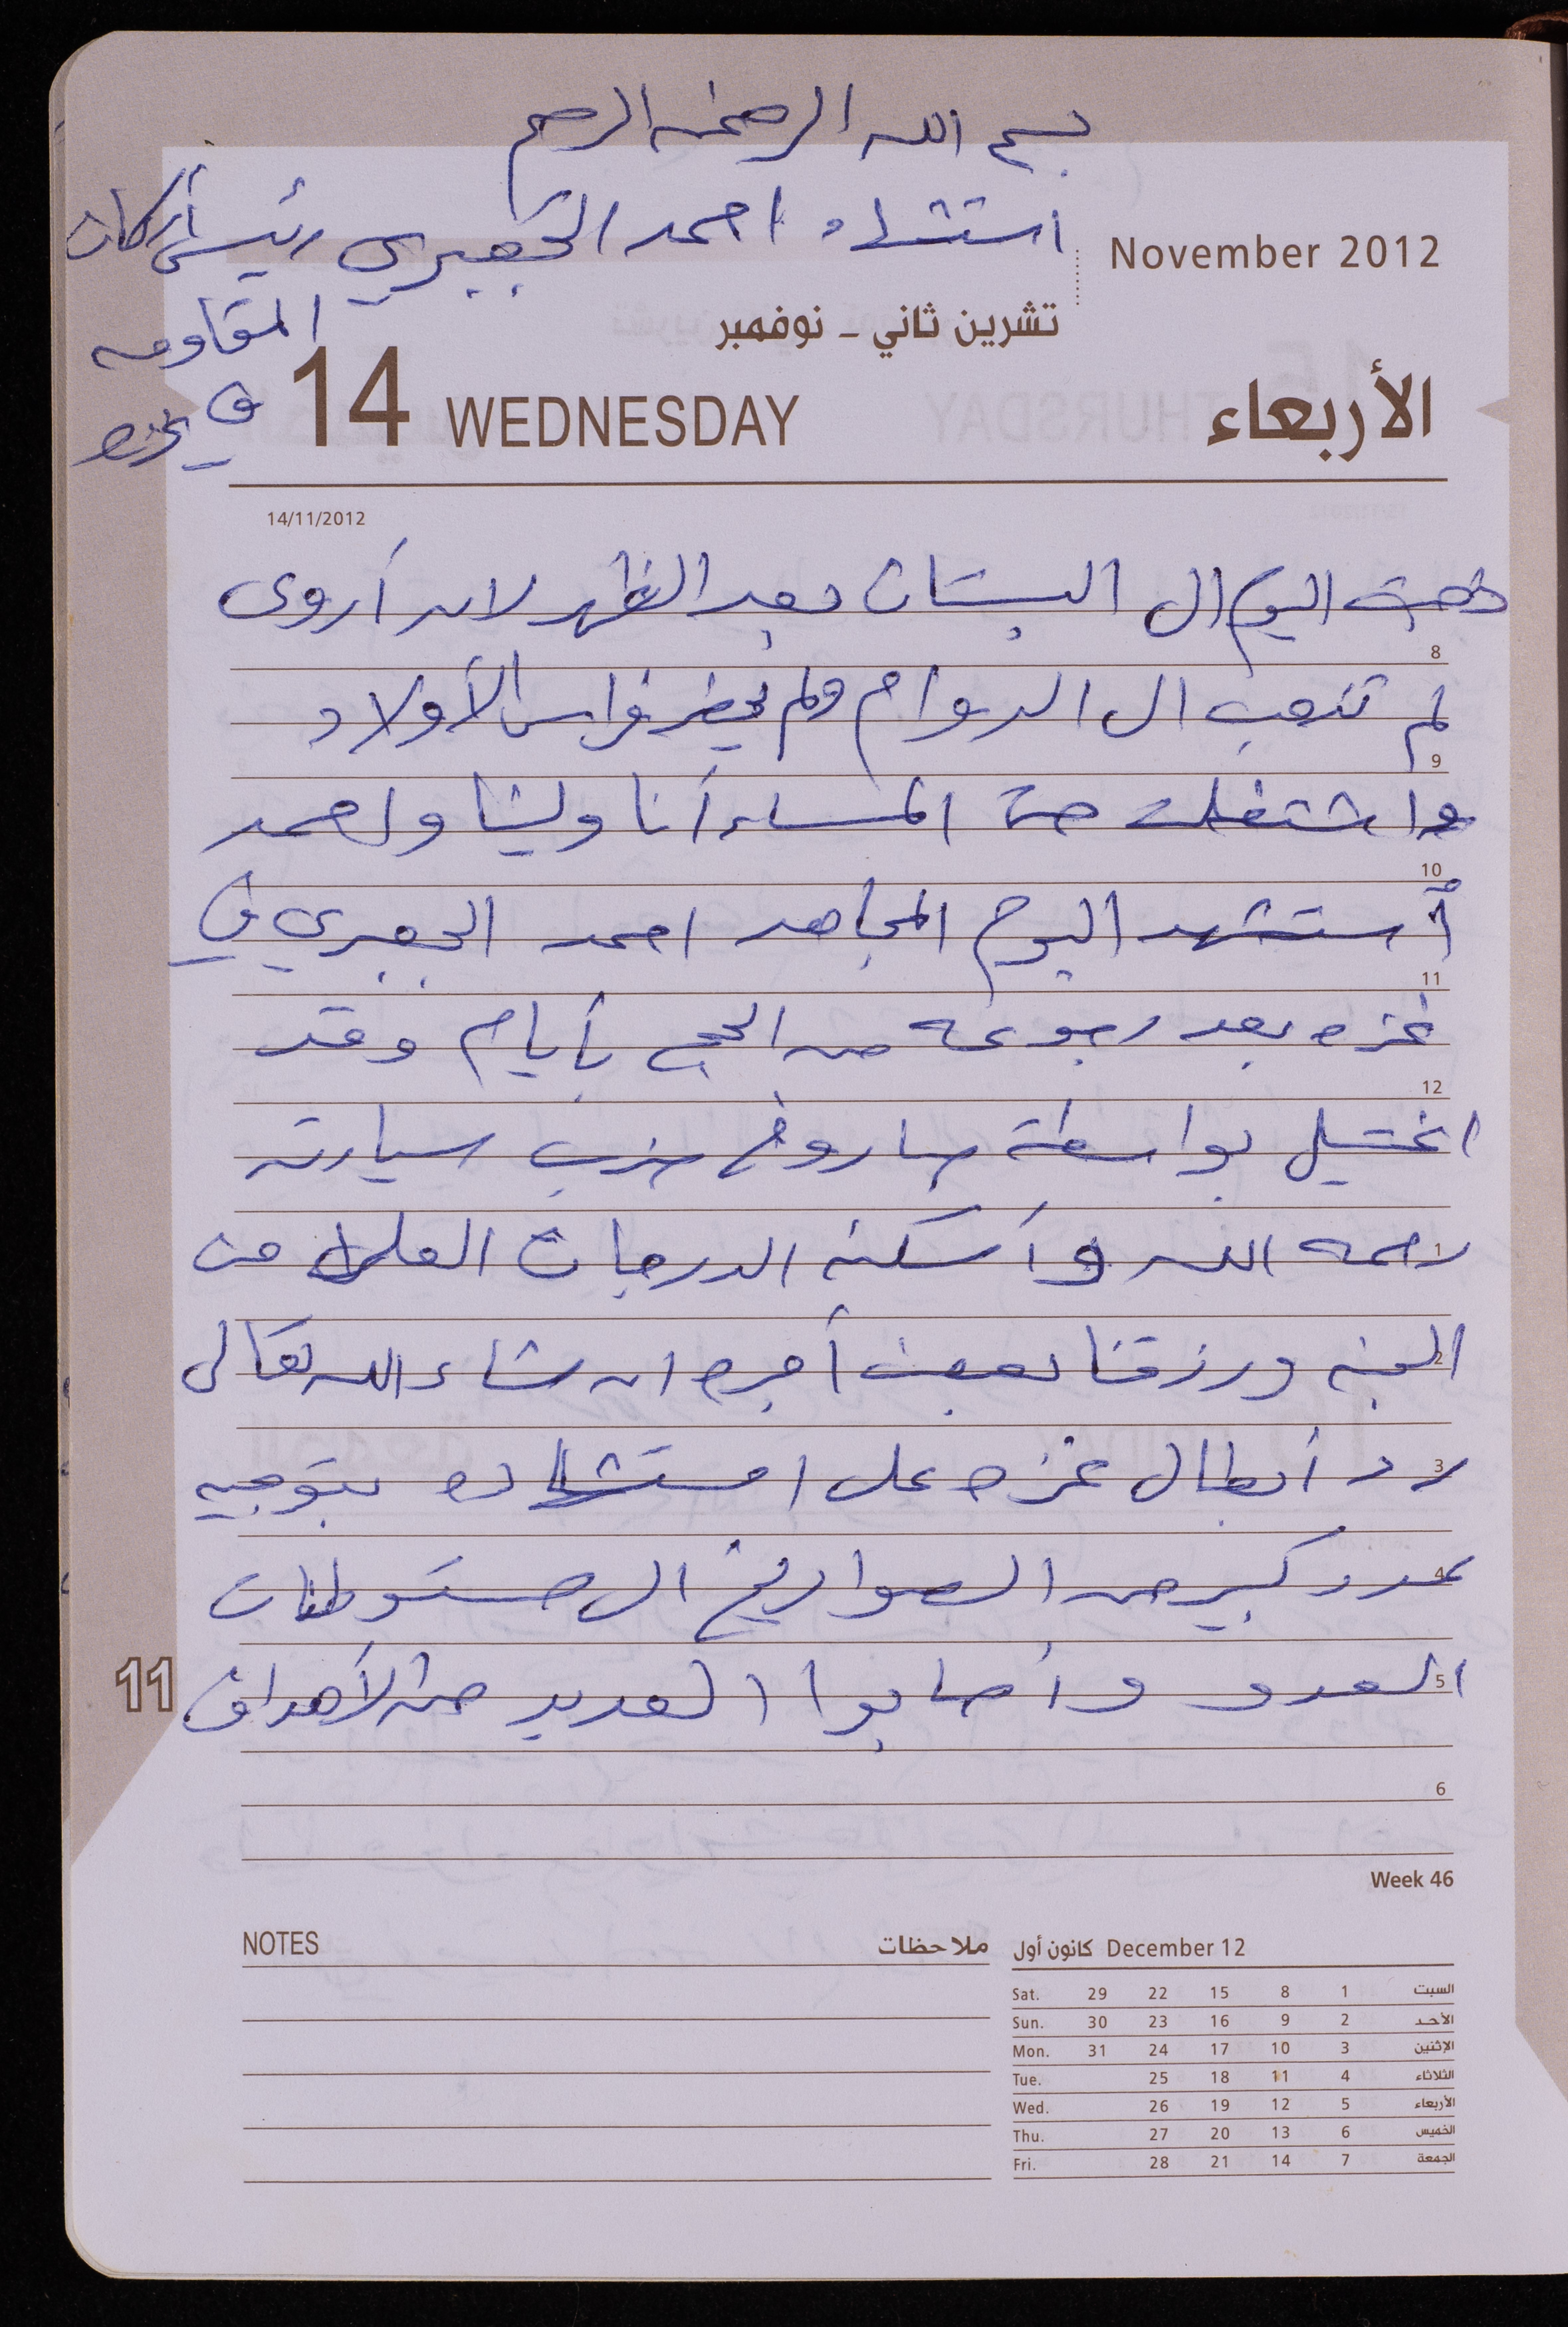 بسم الله الرحمن الرحيم
استشهاد احمد الجعبري رئيس أركان
المقاومه
في غزه
November 2012
تشرين ثاني - نوفمبر
14 WEDNESDAY الأربعاء
14/11/2012
ذهبت اليوم الى البستان بعد الظهر لان أروى
8
لم تذهب الى الدوام ولم يحضر فراس الأولاد
9
واشتغلت حتى المساء أنا ولينا واحمد
10
أستشهد اليوم المجاهد احمد الجعبري في
11
غزه بعد رجوعه من الحج بأيام وقد
12
اغتيل بواسطة صاروخ ضرب سيارته
رحمه الله وأسكنه الدرجات العلى من
1
الجنه ورزقنا بعض أجره ان شاء الله تعالى
2
رد أبطال غزه على استشهاده بتوجيه
3
عدد كبير من الصواريخ الى مستوطنات
4
العدو وأصابوا العديد من الأهداف
5
11
6
Week 46
NOTES ملاحظات
كانون أول December 12
Sat. 29 22 15 8 1 السبت
Sun. 30 23 16 9 2 الأحد
Mon. 31 24 17 10 3 الإثنين
Tue. 25 18 11 4 الثلاثاء
Wed. 26 19 12 5 الأربعاء
Thu. 27 20 13 6 الخميس
Fri. 28 21 14 7 الجمعة